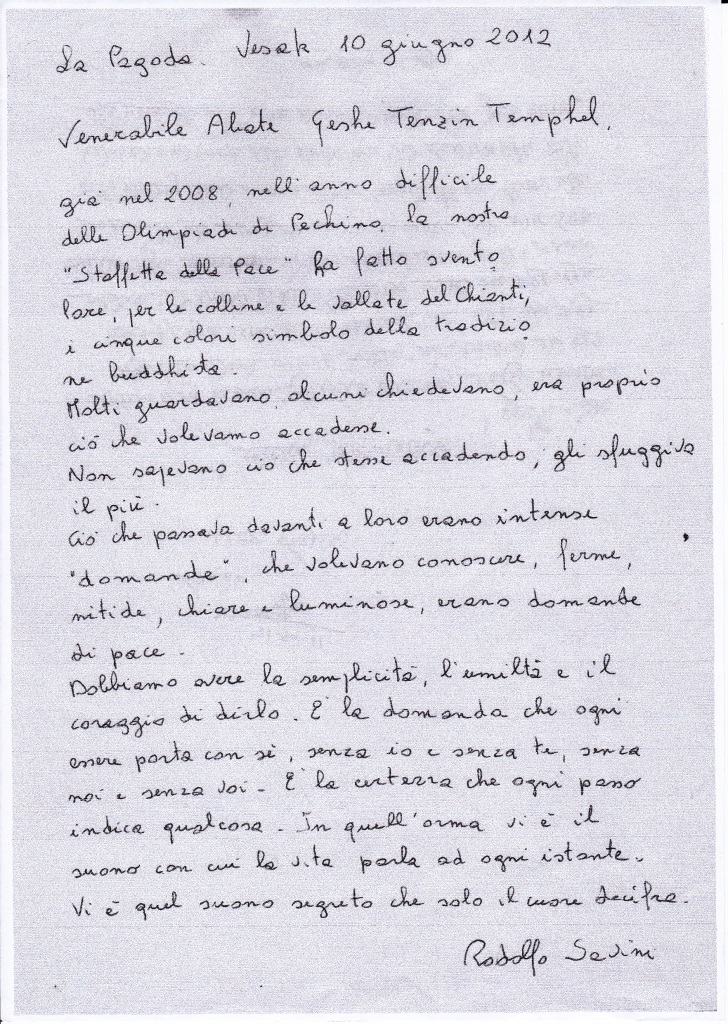 La Pagoda. Vesak 10 giugno 2012
Venerabile Abate Geshe Tenzin Temphel,
già nel 2008, nell'anno difficile
delle Olimpiadi di Pechino, la nostra
"Staffetta della Pace" ha fatto svento
lare, per le colline e le vallate del Chianti,
i cinque colori simbolo della tradizio
ne buddhista.
Molti guardavano, alcuni chiedevano, era proprio
ciò che volevamo accadesse.
Non sapevano ciò che stesse accadendo, gli sfuggiva
il più.
Ciò che passava davanti a loro erano intense
"domande", che volevano conoscere, ferme,
nitide, chiare e luminose, erano domande
di pace.
Dobbiamo avere la semplicità, l'umiltà e il
coraggio di dirlo. È la domanda che ogni
essere porta con sé, senza io e senza te, senza
noi e senza voi. È la certezza che ogni passo
indica qualcosa. In quell'orma vi è il
suono con cui la vita parla ad ogni istante.
Vi è quel suono segreto che solo il cuore decifra.
Rodolfo Savini